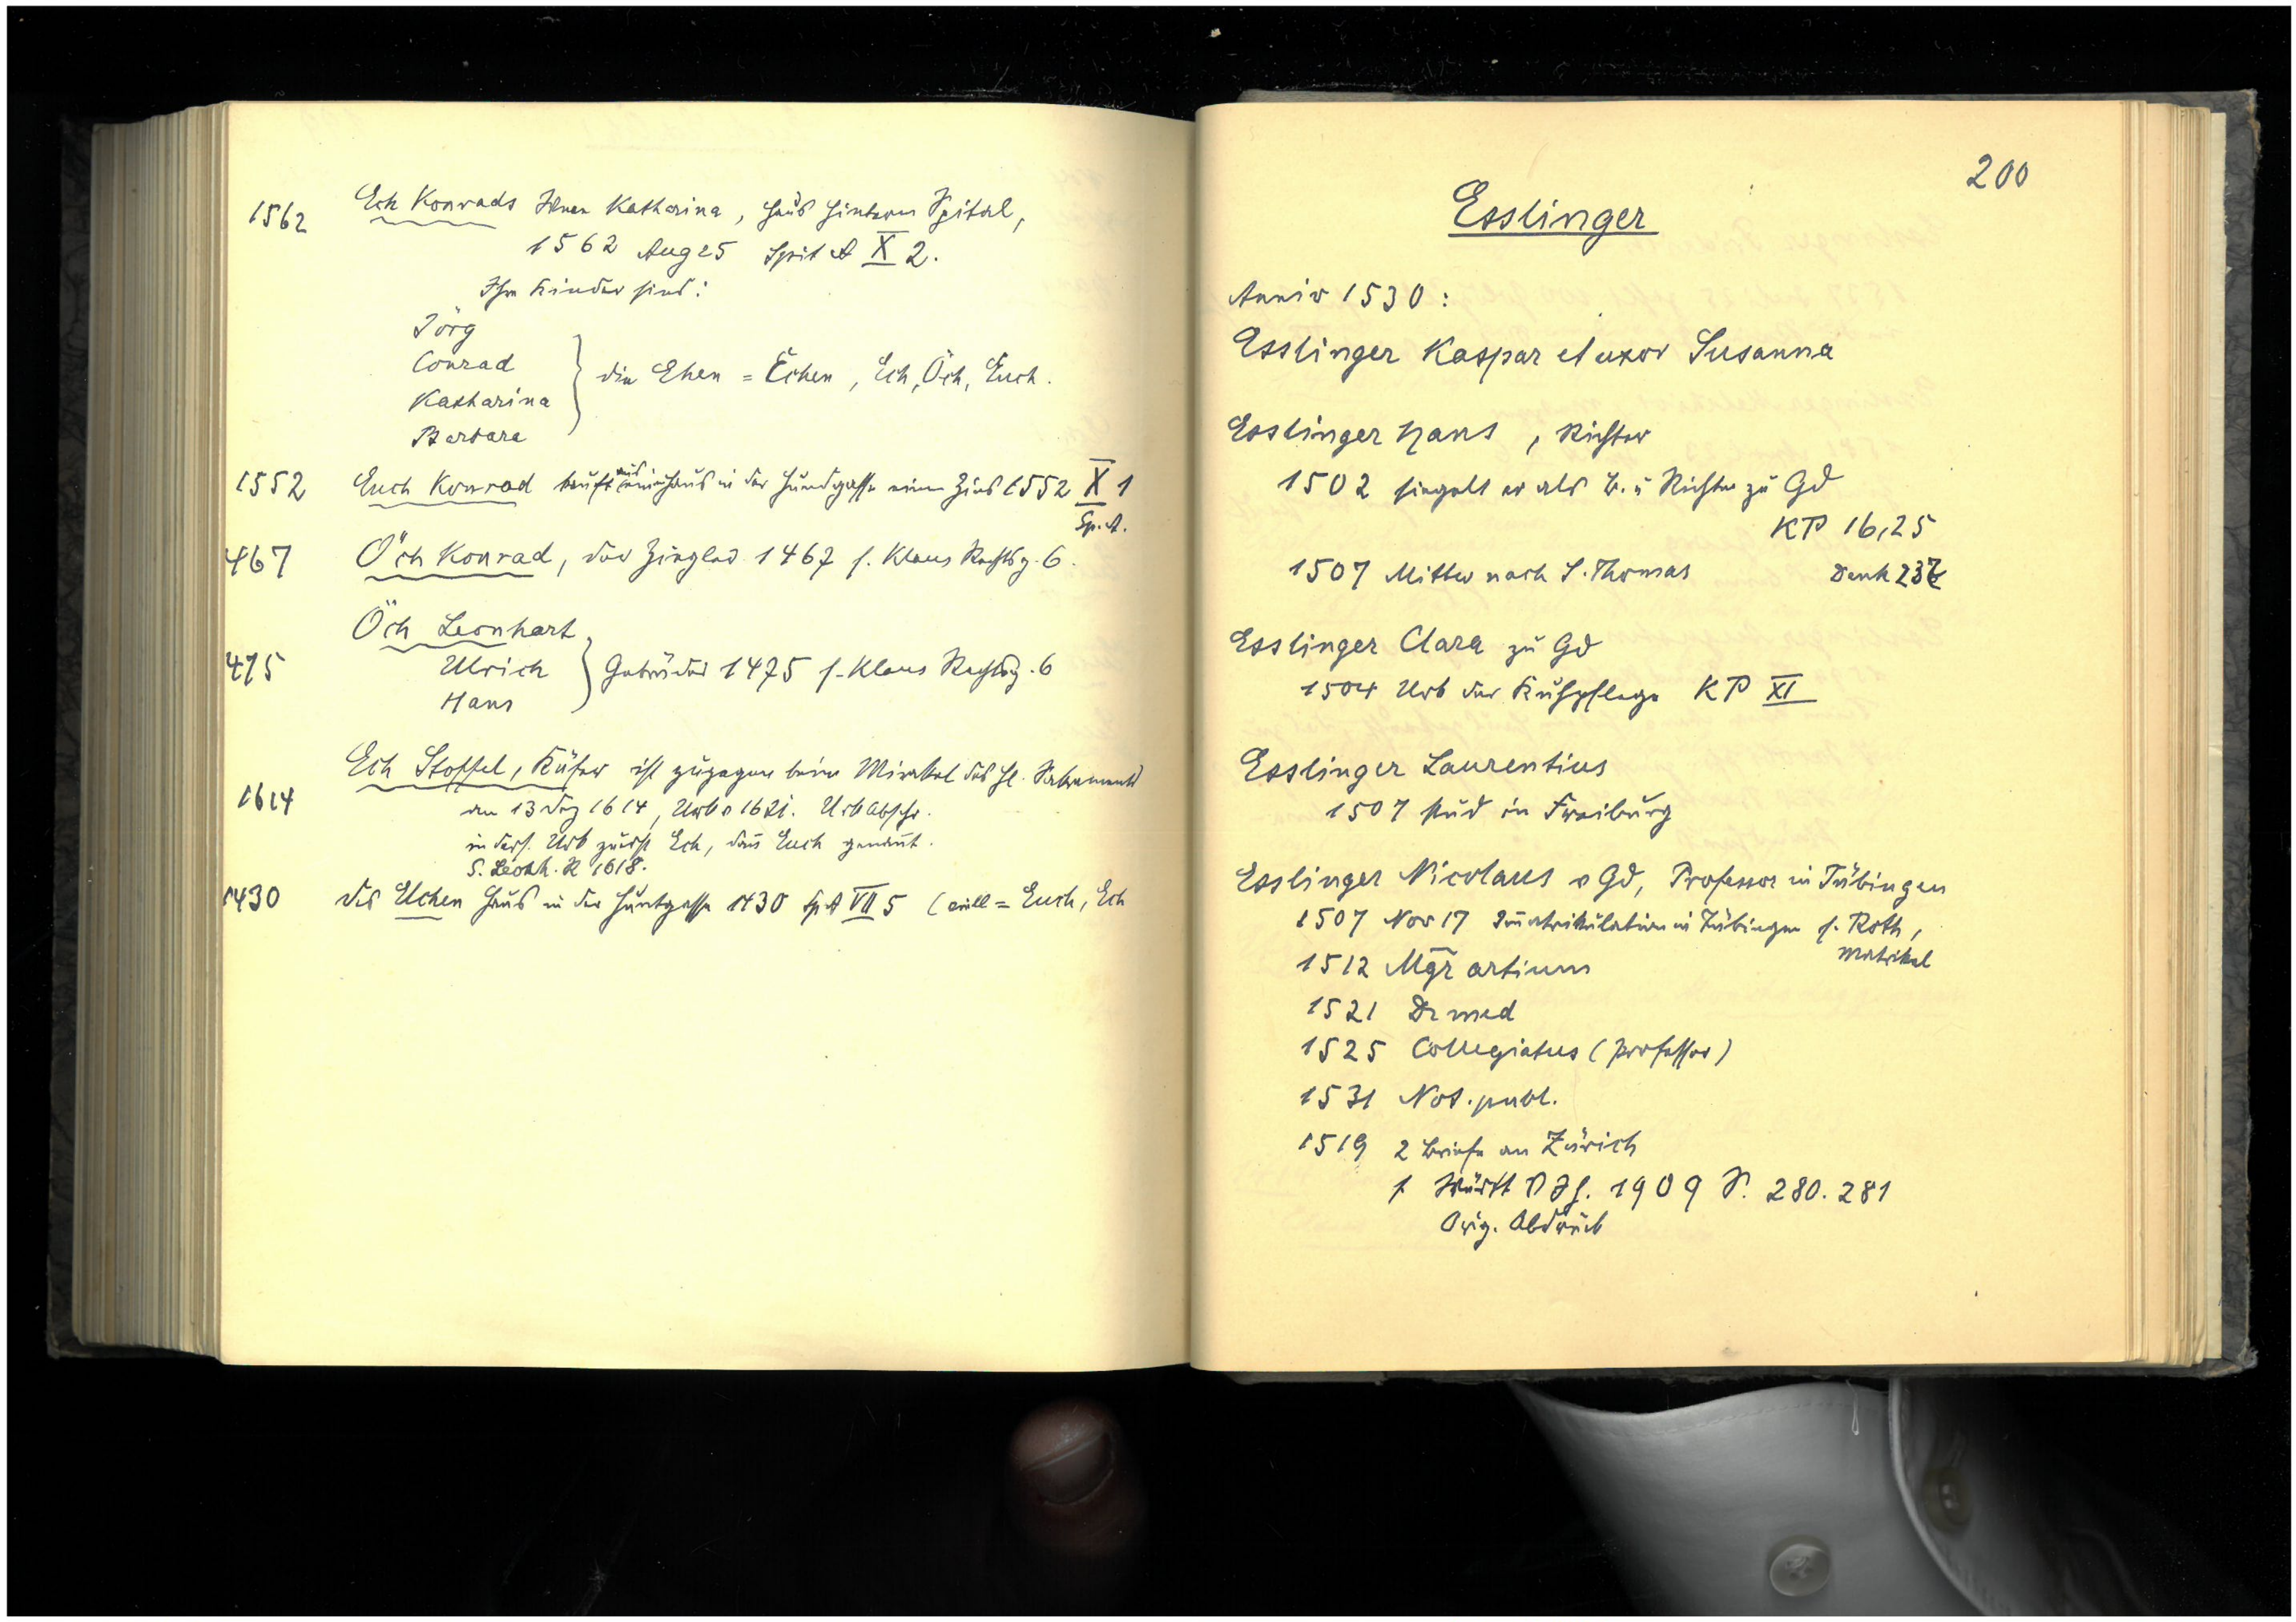 1562 Ech Konrads Wwe Katharina, Haus hinterm Spital,
1562 Aug 25 Spit A X 2.
Ihre Kinder sind:
Jörg
Conrad
Katharina
Barbara
die Ehen = Echen, Ech, Öch, Euch.
1552 Euch Konrad kauft aus Haus in der Hundgasse einen Zins 1552 X 1
Sp. A.
467 Öch Konrad, der Ziegler 1467 s. Klaus Rechtsg. 6.
Öch Leonhart
475 Ulrich } Gebrüder 1475 s. Klaus Rechtsg. 6
Hans
Ech Stoffel, Küfer ist zugegen beim Mirakel des hl. Sakraments
1614 am 13 Dez 1614, Urb v 1621. Urb Abschr.
in ders. Urb zuerst Ech, dann Euch genannt.
S. Leonh. R 1618.
1430 des Uchen Haus in der Huntgasse 1430 Sp A VII 5 (vill = Euch, Ech
200
Esslinger
Anniv 1530:
Esslinger Kaspar et uxor Susanna
Esslinger Hans, Richter
1502 siegelt er als B. u Richter zu Gd
KP 16,25
1507 Mittw nach S. Thomas Denk 237
Esslinger Clara zu Gd
1504 Urb der KP XI
Esslinger Laurentius
1507 stud in Freiburg
Esslinger Nicolaus v Gd, Professor in Tübingen
1507 Nov 17 Immatrikulation in Tübingen s. Roth,
Matrikel
1512 Mgr artium
1521 Dr med
1525 Collegiatus (Professor)
1531 Not. publ.
1519 2 Briefe an Zürich
s Württ V Jh. 1909 S. 280. 281
Orig. Abdruck